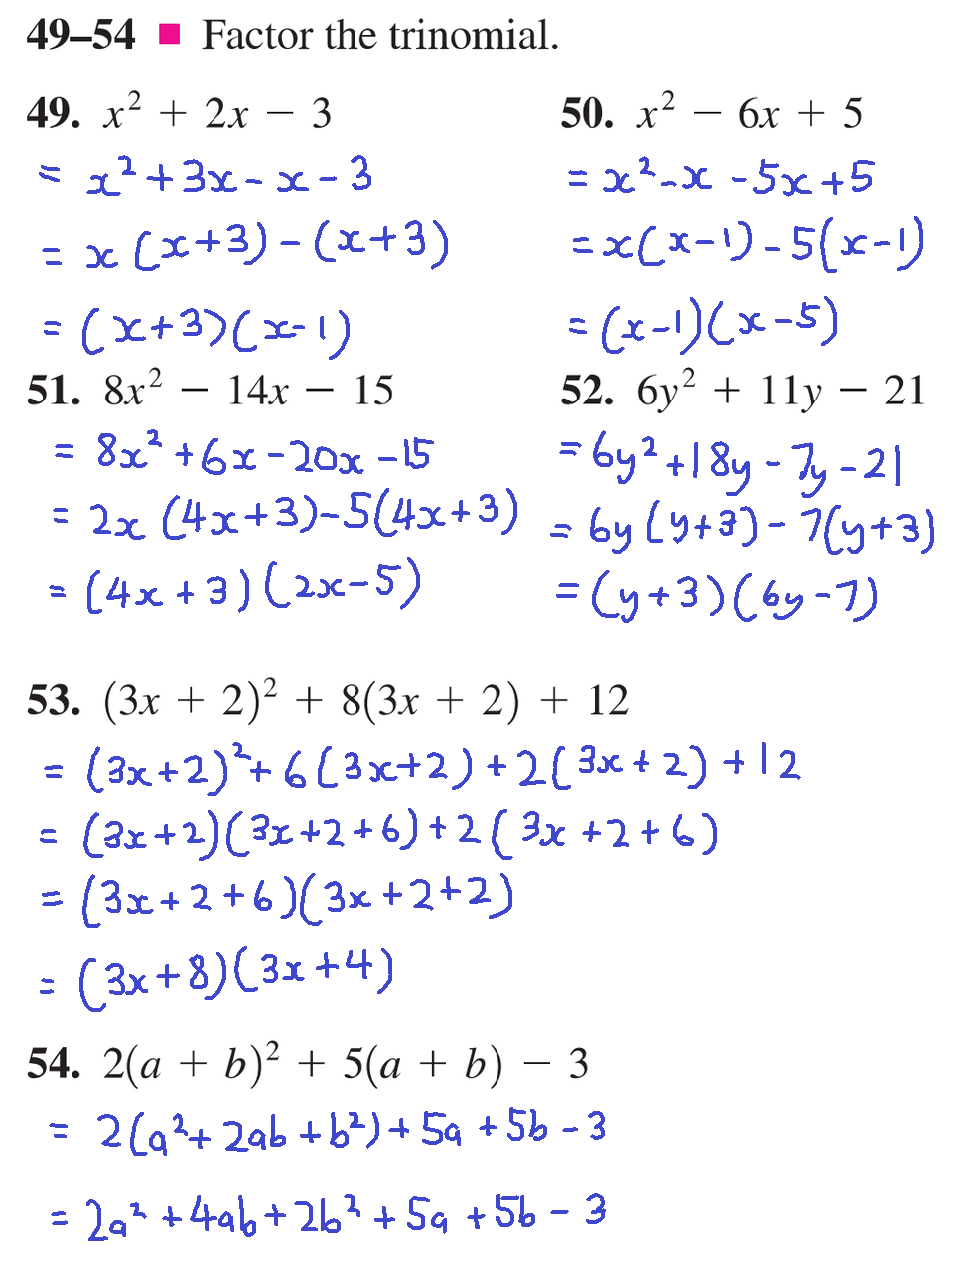 49–54 ■ Factor the trinomial.
49. x² + 2x − 3
= x² + 3x − x − 3
= x (x+3) − (x+3)
= (x+3)(x−1)
50. x² − 6x + 5
= x² − x − 5x + 5
= x(x−1) − 5(x−1)
= (x−1)(x−5)
51. 8x² − 14x − 15
= 8x² + 6x − 20x − 15
= 2x (4x+3) − 5(4x+3)
= (4x+3)(2x−5)
52. 6y² + 11y − 21
= 6y² + 18y − 7y − 21
= 6y (y+3) − 7(y+3)
= (y+3)(6y−7)
53. (3x + 2)² + 8(3x + 2) + 12
= (3x+2)² + 6(3x+2) + 2(3x+2) + 12
= (3x+2)(3x+2+6) + 2(3x+2+6)
= (3x+2+6)(3x+2+2)
= (3x+8)(3x+4)
54. 2(a + b)² + 5(a + b) − 3
= 2(a² + 2ab + b²) + 5a + 5b − 3
= 2a² + 4ab + 2b² + 5a + 5b − 3